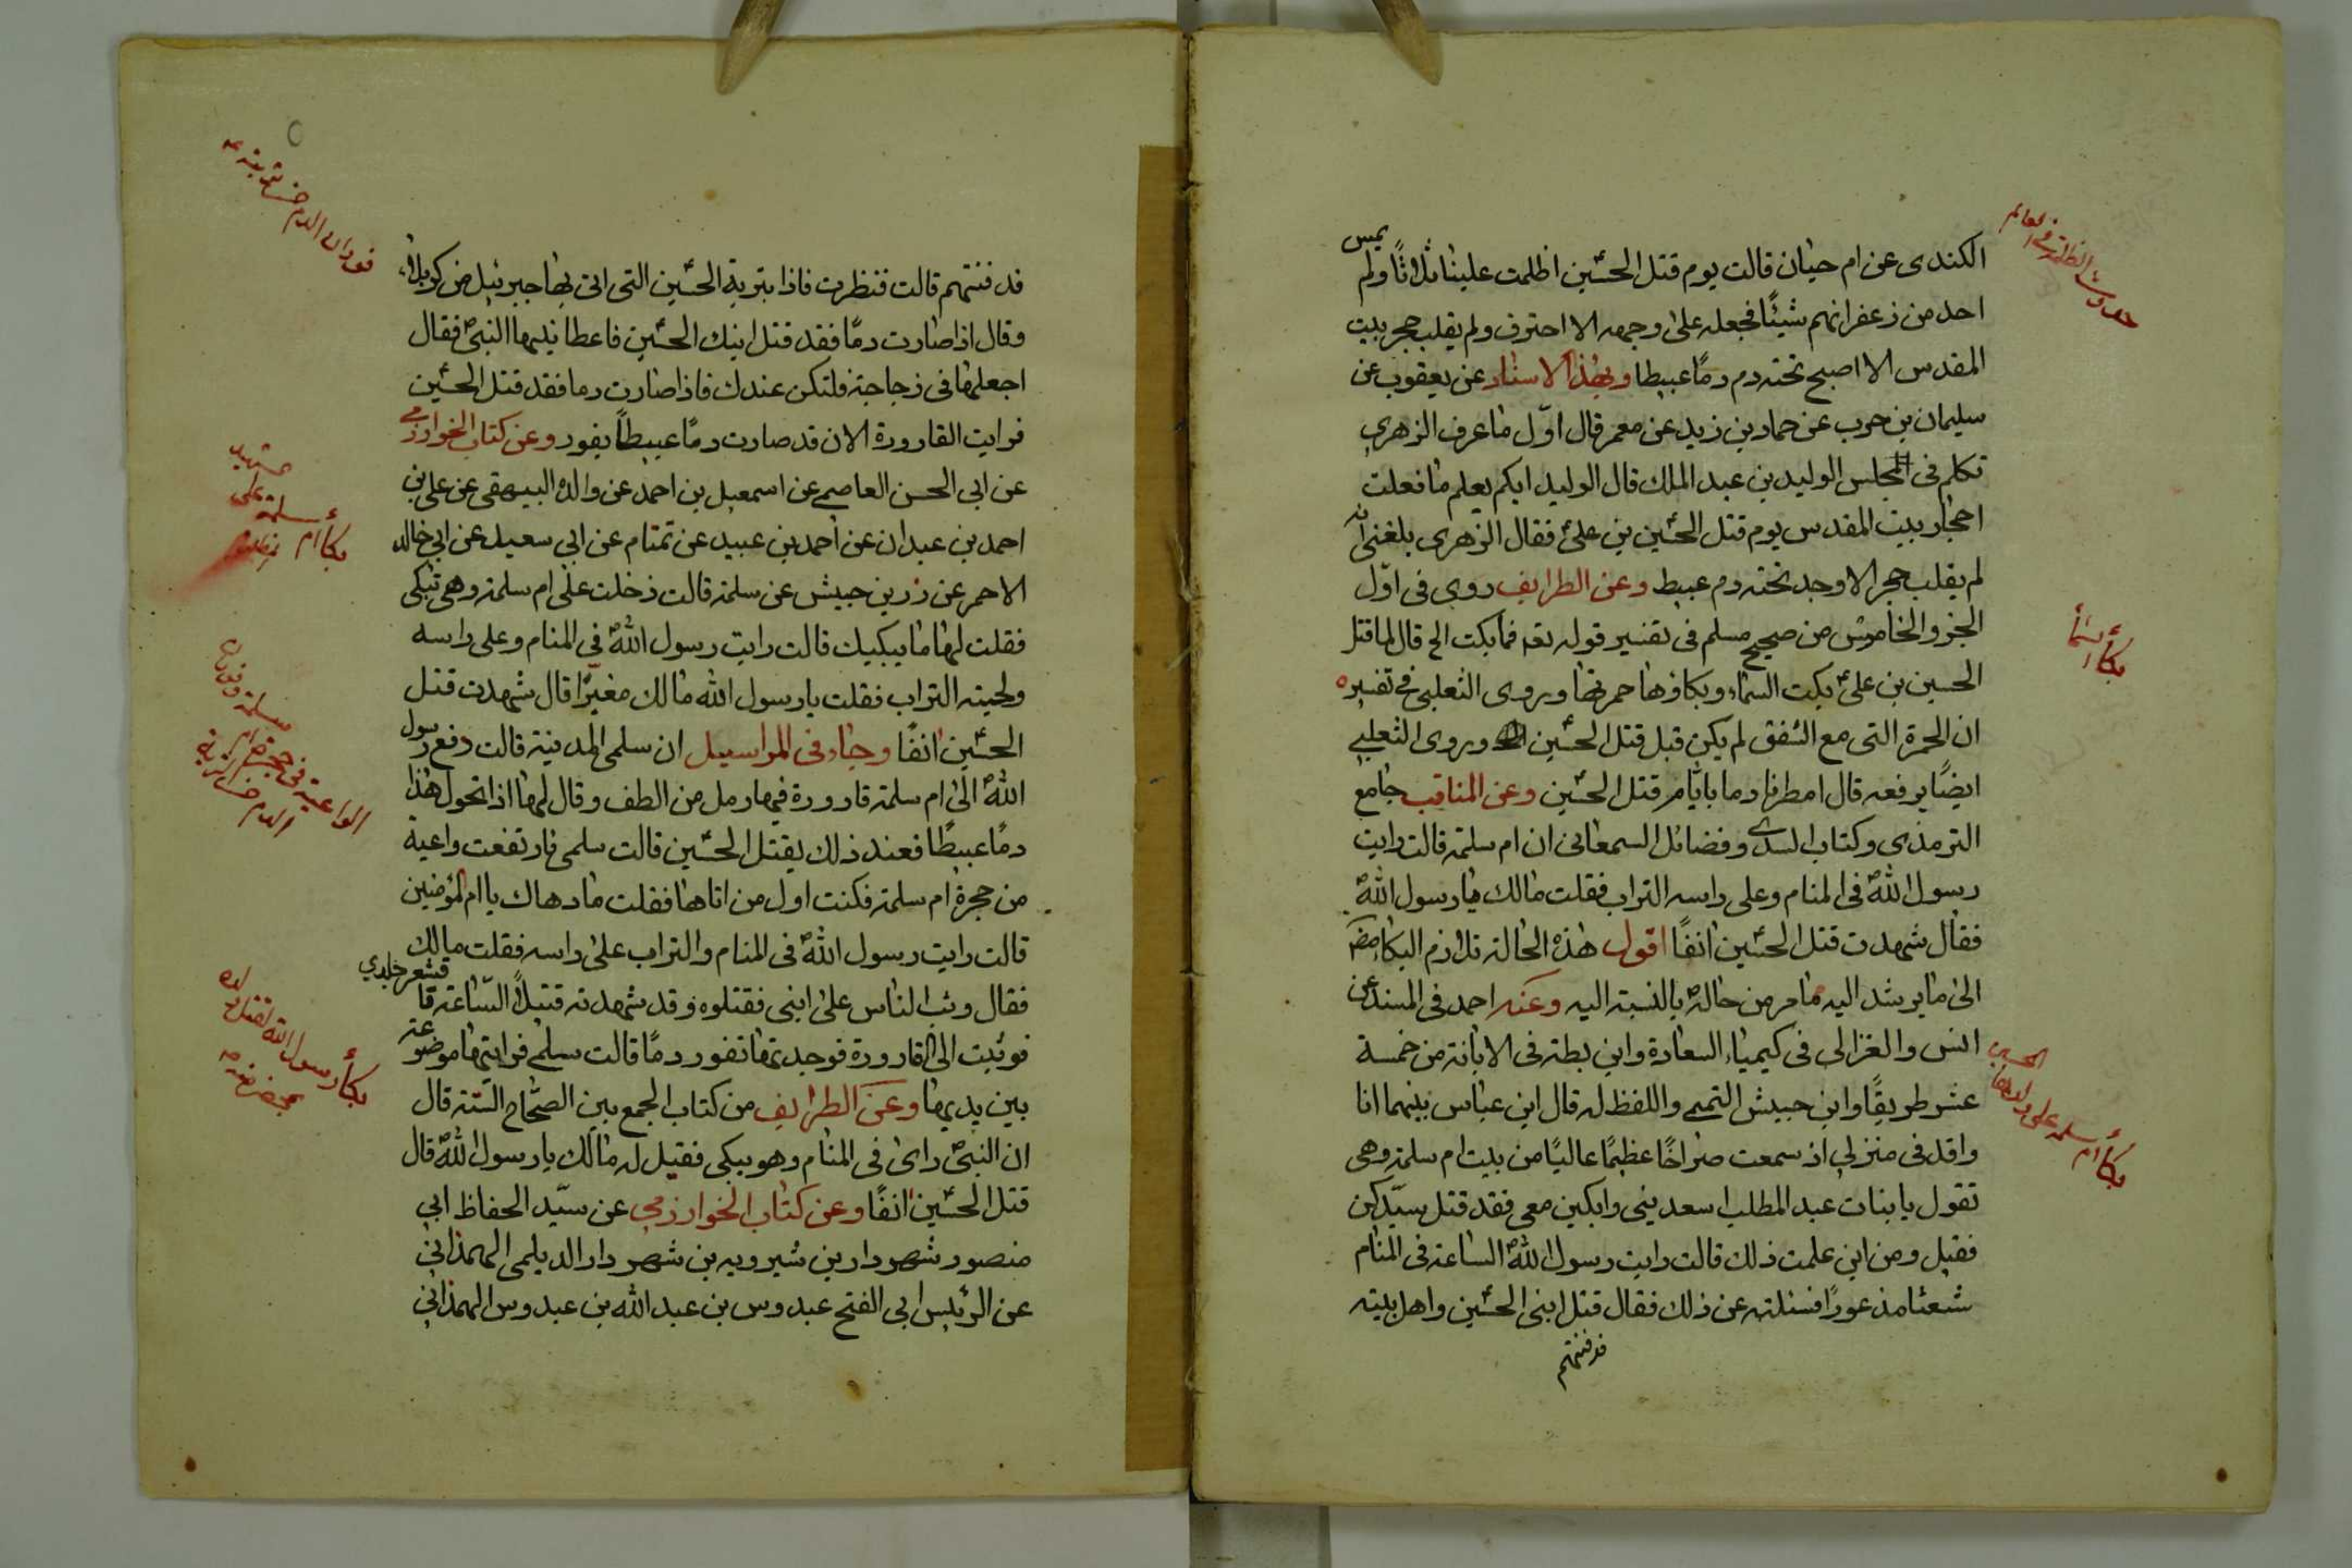 الكندى عن ام حيان قالت يوم قتل الحسين اظلمت علينا ثلاثا ولم يمس
احد من زعفرانهم شيئا فجعله على وجهه الا احترق ولم يقلب حجر ببيت
المقدس الا اصبح تحته دم دما عبيطا وبهذا الاسناد عن يعقوب عن
سليمان بن حرب عن حماد بن زيد عن معمر قال اول ما عرف الزهري
تكلم فى المجلس الوليد بن عبد الملك قال الوليد ايكم يعلم ما فعلت
احجار بيت المقدس يوم قتل الحسين بن علي فقال الزهرى بلغنى انه
لم يقلب حجر الا وجد تحته دم عبيط وعن الطرايف روى فى اول
الجزو الخامس من صحيح مسلم فى تفسير قوله تعه فما بكت الخ قال لما قتل
الحسين بن علي بكت السماء وبكاؤها حمرتها وروى الثعلبى فى تفسيره
ان الحمرة التى مع الشفق لم يكن قبل قتل الحسين وروى الثعلبي
ايضا يرفعه قال امطرنا دما بايام قتل الحسين وعن المناقب جامع
الترمذى وكتاب السدى وفضائل السمعانى ان ام سلمة قالت رايت
رسول الله فى المنام وعلى راسه التراب فقلت مالك يا رسول الله
فقال شهدت قتل الحسين انفا اقول هذه الحالة تلازم البكاء
الى ما يرشد اليه ما مر من حاله بالنسبة اليه وعنه احمد فى المسند عن
انس والغزالى فى كيمياء السعادة وابن بطه فى الابانة من خمسة
عشر طريقا وابن حبيش التميمى واللفظ له قال ابن عباس بينما انا
راقد فى منزلي اذ سمعت صراخا عظيما عاليا من بيت ام سلمة وهى
تقول يا بنات عبد المطلب اسعدينى وابكين معى فقد قتل سيدكن
فقيل ومن اين علمت ذلك قالت رايت رسول الله الساعة فى المنام
شعثا مذعورا فسئلته عن ذلك فقال قتل ابنى الحسين واهل بيته
فدفنتهم
حدوث الظلمة فى العالم
بكاء السماء
بكاء ام سلمه على ولدها الحسين
فدفنتهم قالت فنظرت فاذا بتربة الحسين التى اتى بها جبرئيل من كربلاء
وقال اذا صارت دما فقد قتل ابنك الحسين فاعطانيها النبى فقال
اجعلها فى زجاجة فلتكن عندك فاذا صارت دما فقد قتل الحسين
فرايت القارورة الان قد صارت دما عبيطا يفور وعن كتاب الخوارزمي
عن ابي الحسن العاصمي عن اسمعيل بن احمد عن والده البيهقى عن على بن
احمد بن عبدان عن احمد بن عبيد عن تمتام عن ابي سعيد عن ابي خالد
الاحمر عن زر بن حبيش عن سلمة قالت دخلت على ام سلمة وهى تبكى
فقلت لها ما يبكيك قالت رايت رسول الله فى المنام وعلى راسه
ولحيته التراب فقلت يا رسول الله مالك مغبرا قال شهدت قتل
الحسين انفا وجاء فى المراسيل ان سلمى المدينة قالت دفع رسول
الله الى ام سلمة قارورة فيها رمل من الطف وقال لها اذا تحول هذا
دما عبيطا فعند ذلك يقتل الحسين قالت سلمى فارتفعت واعية
من حجرة ام سلمة فكنت اول من اتاها فقلت ما دهاك يا ام المؤمنين
قالت رايت رسول الله فى المنام والتراب على راسه فقلت مالك
فقال وثب الناس على ابنى فقتلوه وقد شهدته قتيلا الساعة فاقشعر جلدي
فوثبت الى القارورة فوجدتها تفور دما قالت سلمى فرايتها موضوعة
بين يديها وعن الطرايف من كتاب الجمع بين الصحاح الستة قال
ان النبى راى فى المنام وهو يبكى فقيل له مالك يا رسول الله قال
قتل الحسين انفا وعن كتاب الخوارزمي عن سيد الحفاظ ابي
منصور شهردار بن شيرويه بن شهردار الديلمى الهمذانى
عن الرئيس ابى الفتح عبدوس بن عبد الله بن عبدوس الهمذاني
فوران الدم من تربته
بكاء ام سلمة على
الواعية فى حجرة ام سلمة وفوران الدم من التربة
بكاء رسول الله لقتل ولده